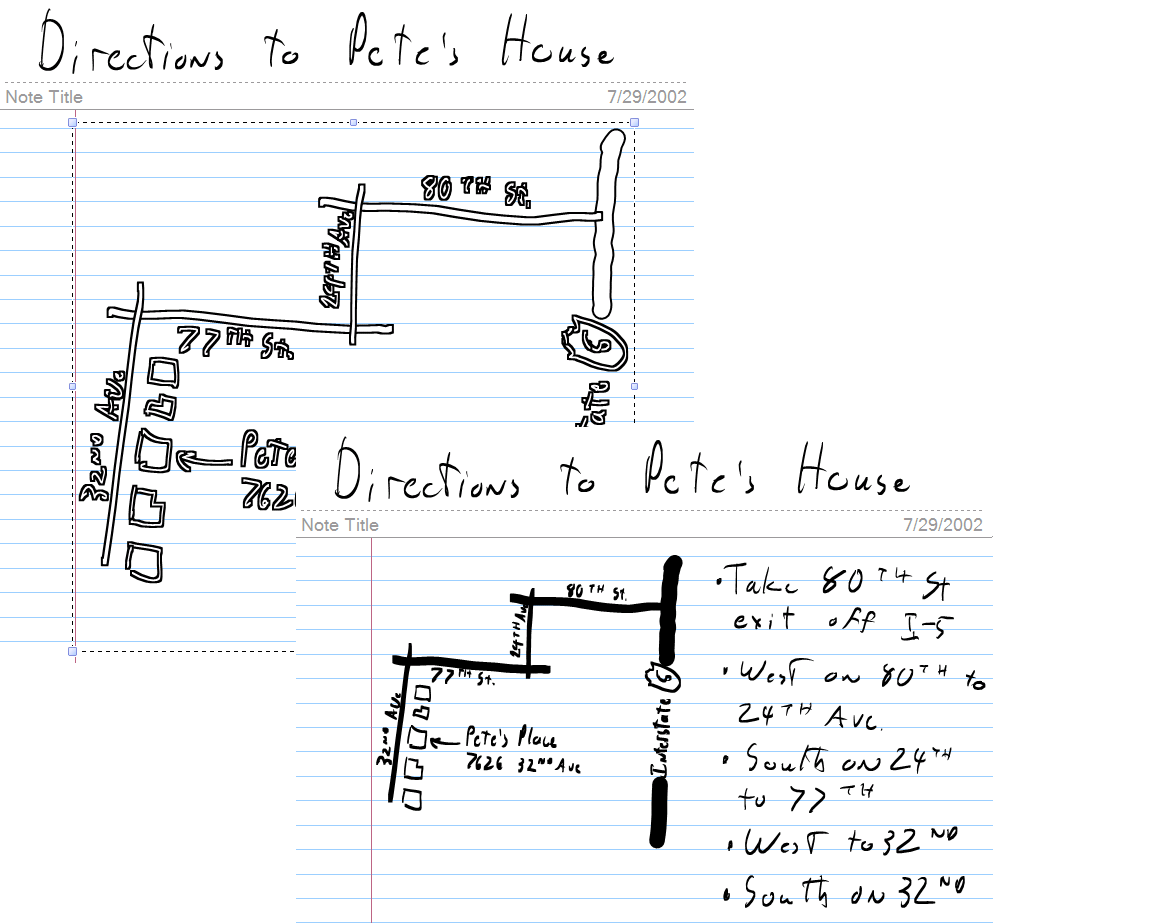 Directions to Pete's House
Note Title 7/29/2002
80TH St.
24TH Ave
77TH St.
5
32ND Ave
Pete
762
Directions to Pete's House
Note Title 7/29/2002
80TH St.
24TH Ave
77TH St.
5
Interstate
32ND Ave
Pete's Place
7626 32ND Ave
• Take 80TH St
exit off I-5
• West on 80TH to
24TH Ave.
• South on 24TH
to 77TH
• West to 32ND
• South on 32ND